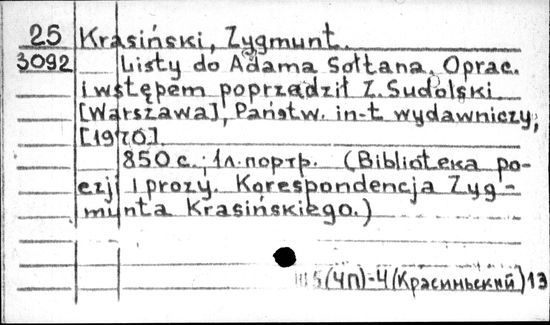 25 Krasiński, Zygmunt.
3092 Listy do Adama Sołtana. Oprac.
i wstępem poprzedził Z. Sudolski
[Warszawa], Państw. in-t wydawniczy,
[1970].
850 с.; 1л. портр. (Biblioteka po-
ezji i prozy. Korespondencja Zyg-
munta Krasińskiego.)
5(4П)-4(Красиньский)13